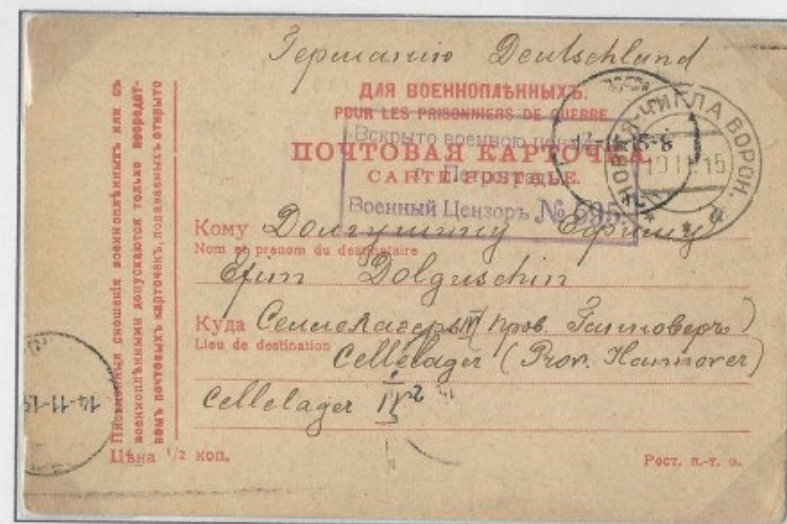 Германию Deutschland
ДЛЯ ВОЕННОПЛѢННЫХЪ.
POUR LES PRISONNIERS DE GUERRE
Вскрыто военною
ПОЧТОВАЯ КАРТОЧКА.
CARTE POSTALE.
Военный Цензоръ № 595
НОВАЯ-ЧИГЛА ВОРОН.
Кому Долгушину Ефиму
Nom et prenom du destinataire
Efim Dolguschin
Куда Целлелагерь (пров. Ганноверъ)
Lieu de destination
Cellelager (Prov. Hannover)
Cellelager
Цѣна 1/2 коп.
Рост. п.-т. о.
Письменныя сношенія военноплѣнныхъ или съ
военноплѣнными допускаются только посредст-
вомъ почтовыхъ карточекъ, подаваемыхъ открыто
14-11-15